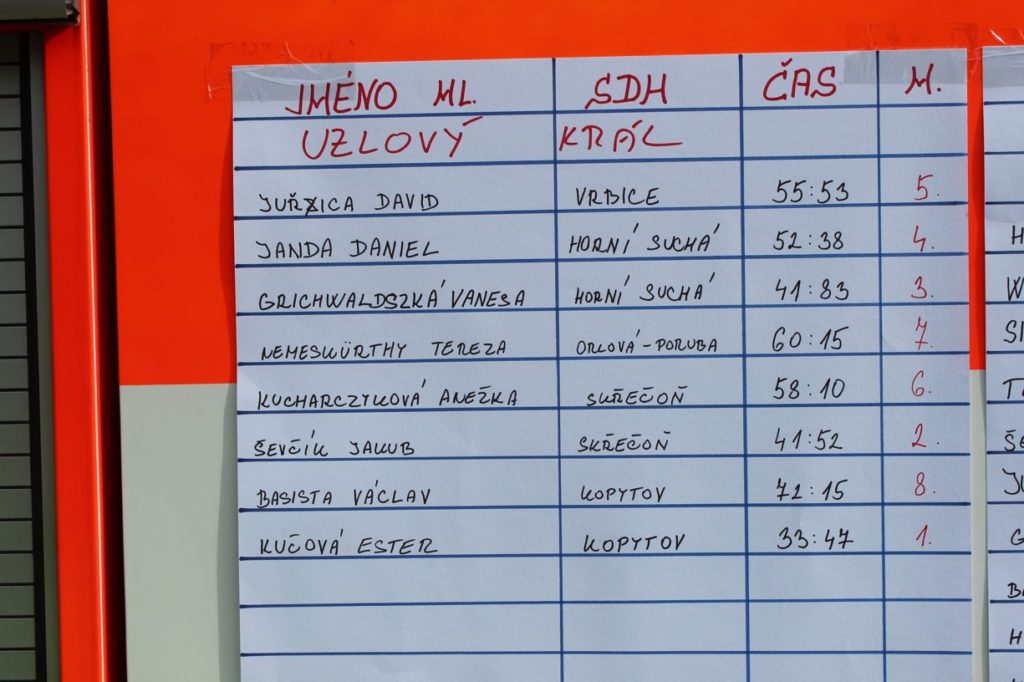 JMÉNO ML. SDH ČAS M.
UZLOVÝ KRÁL
JUŘICA DAVID VRBICE 55:53 5.
JANDA DANIEL HORNÍ SUCHÁ 52:38 4.
GRICHWALDSZKÁ VANESA HORNÍ SUCHÁ 41:83 3.
NEMESKÜRTHY TEREZA ORLOVÁ-PORUBA 60:15 7.
KUCHARCZYKOVÁ ANEŽKA SKŘEČOŇ 58:10 6.
ŠEVČÍK JAKUB SKŘEČOŇ 41:52 2.
BASISTA VÁCLAV KOPYTOV 72:15 8.
KUČOVÁ ESTER KOPYTOV 33:47 1.